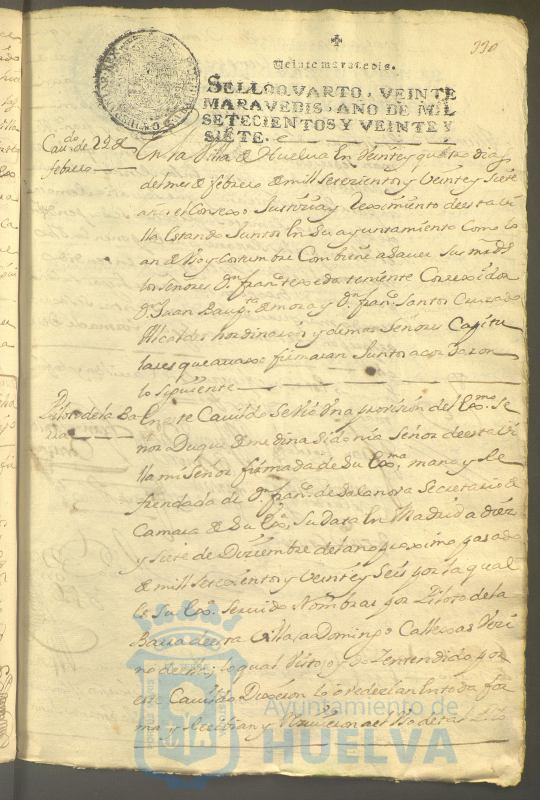 330
Veinte maravedis.
SELLO QVARTO, VEINTE
MARAVEDIS, AÑO DE MIL
SETECIENTOS Y VEINTE Y
SIETE.
Cavdo de 24 de
febrero
En la Villa de Huelva en Veinte y quatro dias
del mes de febrero de mill setezientos y Veinte y siete
años el Consexo Justizia y Reximiento de esta Vi
lla estando Juntos en su ayuntamiento como lo
an de Vso y costumbre Combiene a saver sus mds
los señores Dn franco texeda teniente Correxidor
Dn Juan Baupta de mora y Dn franco Santos
Alcaldes hordinarios y demas Señores Capitu
lares que avaxo firmaran Juntos acordaron
lo siguiente
Piloto de la Ba
rra
En este Cavildo se Vio Vna provision del Exmo Se
ñor Duque de medina sidonia Señor de esta Vi
lla mi Señor firmada de su Exa mano y Re
frendada de Dn franco de Salanova Secretario de
Camara de Su Exa, Su data en Madrid a diez
y siete de Diziembre del año proximo pasado
de mill setezientos y Veinte y Seis por la qual
Su Exa Servido Nombrar por Piloto de la
Barra de esta Villa, a Domingo Vezi
no de ella; lo qual Visto y entendido por
este Cavildo Dixeron lo ovedezian en toda for
ma y Rezibian y Rezivieron al Vso de tal Pilo
Ayuntamiento de
HUELVA